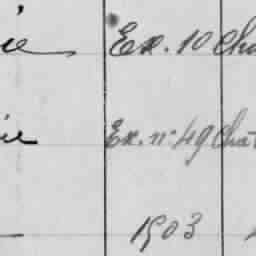 ie Ex. 10 Cha
ie Ex. n° 49 Chat
1903